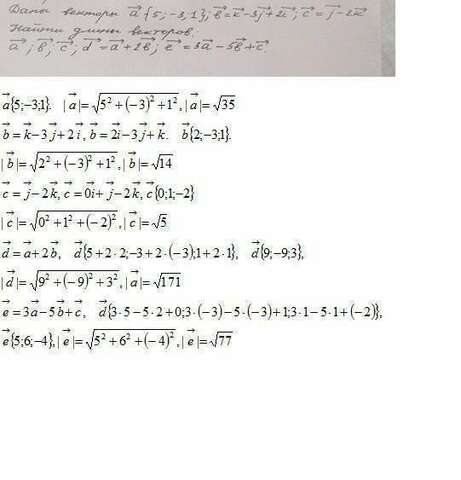 Даны векторы a⃗{5;-3,1}; b⃗=k⃗-3j⃗+2i⃗; c⃗=j⃗-2k⃗
Найти длины векторов:
a⃗; b⃗; c⃗; d⃗=a⃗+2b⃗; e⃗=3a⃗-5b⃗+c⃗
a⃗{5;-3;1}. |a⃗|=√(5²+(-3)²+1²), |a⃗|=√35
b⃗=k⃗-3j⃗+2i⃗, b⃗=2i⃗-3j⃗+k⃗. b⃗{2;-3;1}.
|b⃗|=√(2²+(-3)²+1²), |b⃗|=√14
c⃗=j⃗-2k⃗, c⃗=0i⃗+j⃗-2k⃗, c⃗{0;1;-2}
|c⃗|=√(0²+1²+(-2)²), |c⃗|=√5
d⃗=a⃗+2b⃗, d⃗{5+2·2;-3+2·(-3);1+2·1}, d⃗{9;-9;3},
|d⃗|=√(9²+(-9)²+3²), |a⃗|=√171
e⃗=3a⃗-5b⃗+c⃗, d⃗{3·5-5·2+0;3·(-3)-5·(-3)+1;3·1-5·1+(-2)},
e⃗{5;6;-4}, |e⃗|=√(5²+6²+(-4)²), |e⃗|=√77